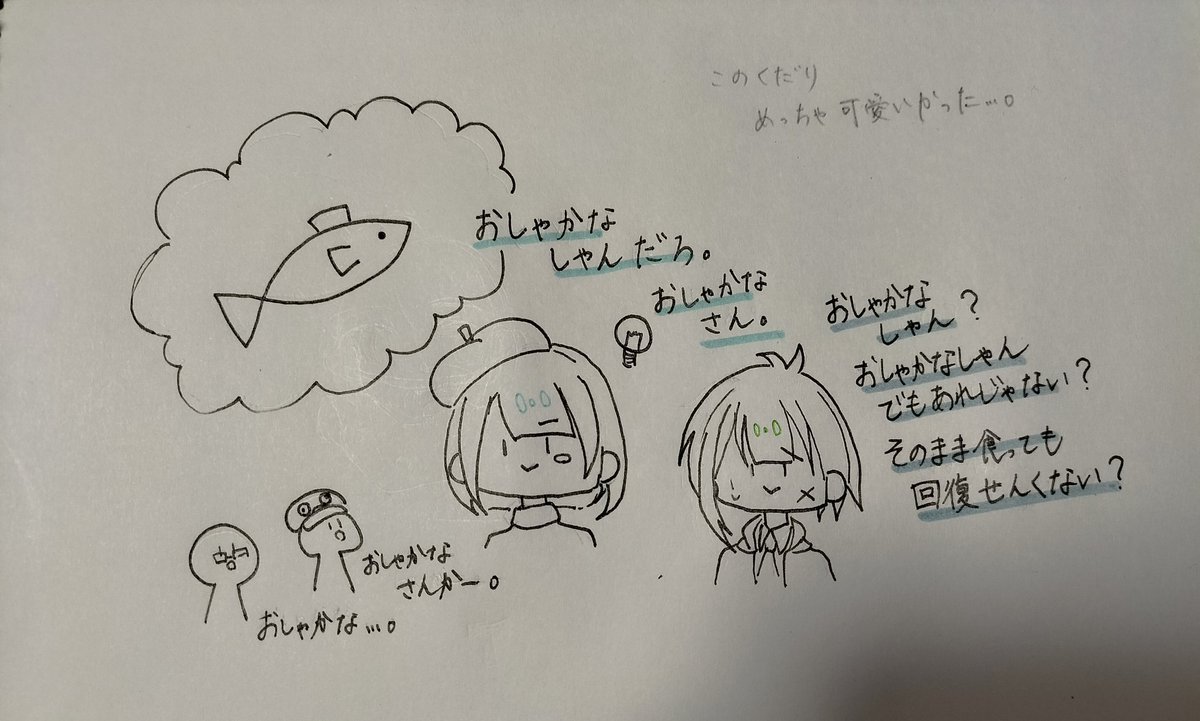 このくだり
めっちゃ可愛いかった…。
おしゃかな
しゃんだろ。
おしゃかな
さん。
おしゃかな
しゃん？
おしゃかなしゃん
でもあれじゃない？
そのまま食っても
回復せんくない？
おしゃかな
さんかー。
おしゃかな…。